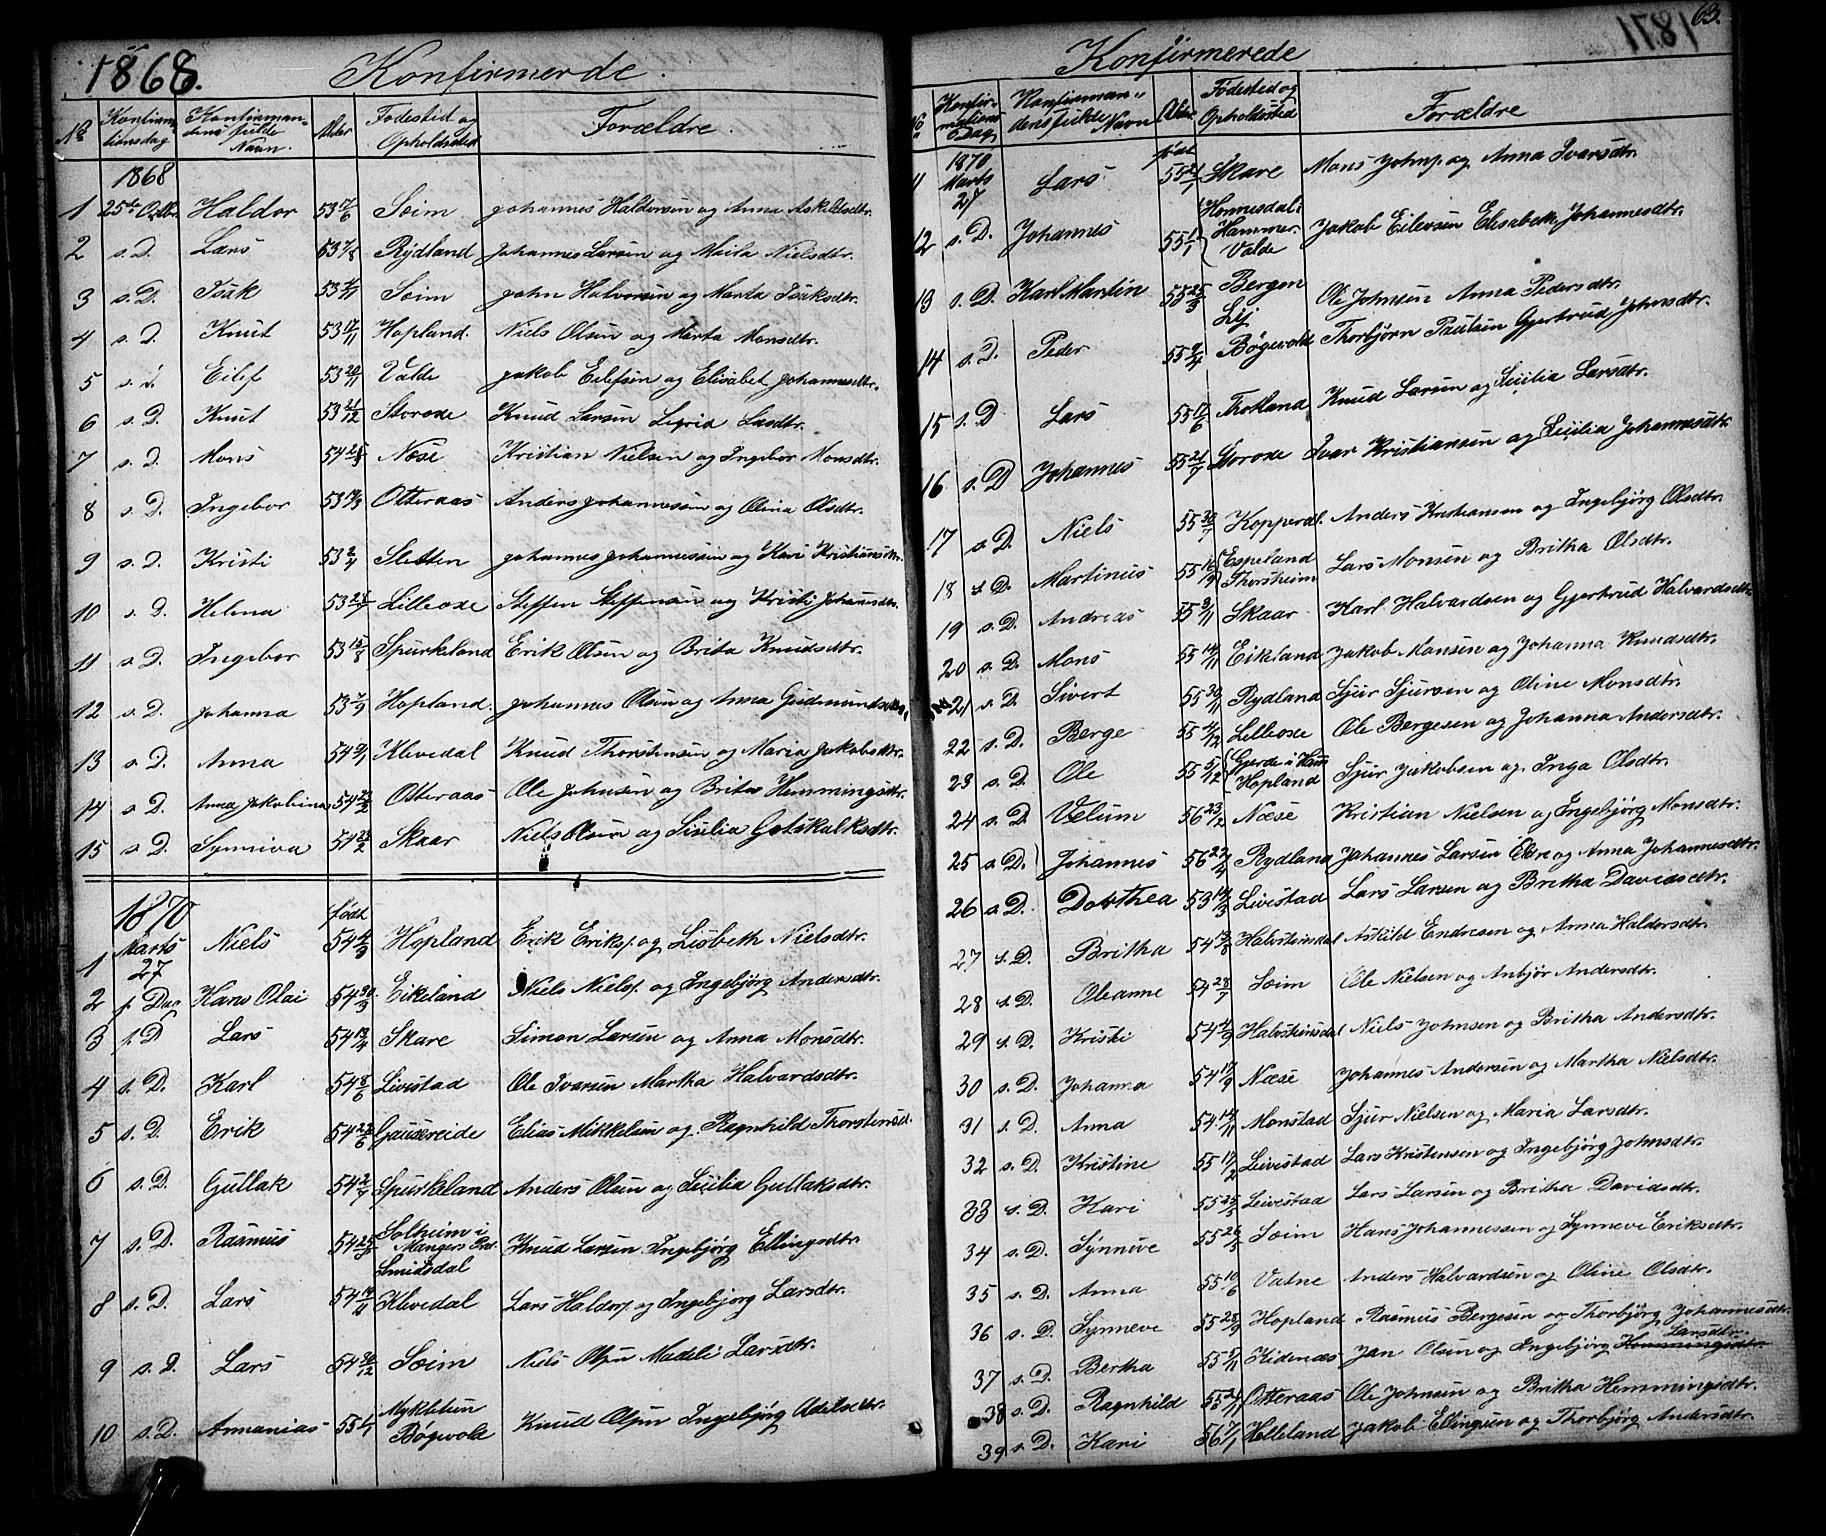 1868. Konfirmerde.
No Konfirmationsdag Konfirmandens fulde Navn. Alder Fødested og Opholdssted Forældre.
1868
1 25de Octbr. Haldor 53 17/6 Seim Johannes Haldorsen og Anna Askildsdtr.
2 s. D. Lars 53 7/8 Rydland Johannes Larsen og Marta Nielsdtr.
3 s. D. Isak Seim John Halvorsen og Marta Isaksdtr.
4 s. D. Knut 53 17/11 Hopland. Niels Olsen og Marta Monsdtr.
5 s. d. Eilef 53 20/11 Valde Jakob Eilefsen og Elisabet Johannesdtr.
6 s. D. Knut 53 21/12 Storose Knud Larsen Sigrid Larsdtr.
7 s. D. Mons Næse Kristian Nielsen og Ingebor Monsdtr.
8 s. D. Ingebor Otteraas Anders Johannessen og Olina Olsdtr.
9 s. D. Kristi 53 2/4 Sletten Johannes Johannessen og Kari Kristiansdtr.
10 s. D. Helena Lilleose Steffen Steffensen og Kristi Johansdtr.
11 s. D. Ingebor 53 15/8 Spurkeland Erik Olsen og Brita Knudsdtr.
12 s. D. Johanna 53 7/9 Hopland. Johannes Olsen og Anna Gudmundsdtr.
13 s. D. Anna Klevedal Knud Thorstensen og Maria Jakobsdtr.
14 s. D. Anna Jakobina Otteraas Ole Johnsen og Brita Hemmingsdtr.
15 s. D. Synneva 54 23/2 Skaar Niels Olsen og Sisilia Gotskalksdtr.
1870 født
1 Marts 27 Niels 54 4/3 Hopland Erik Eriks. og Lisbeth Nielsdtr.
2 s. Dag Hans Olai 54 30/3 Eikeland Niels Niels. og Ingebjørg Andersdtr.
3 s. D Lars Skare Simon Larsen og Anna Monsdtr.
4 s. D. Karl 54 8/6 Livestad Ole Ivarsen Martha Halvardsdtr.
5 s. D. Erik Gausereide Elias Mikkelsen og Ragnhild Thorstensd.
6 s. D. Gullak 54 2/7 Spurkeland Anders Olsen og Sicilia Gullaksdtr.
7 s. D. Rasmus Solheim i Mangers Prd. Smidsdal Knud Larsen Ingebjørg Ellingsdtr.
8 s. D. Lars 54 14/11 Klevedal Lars Haldors. og Ingebjørg Larsdtr.
9 s. D. Lars 54 30/12 Seim Niels Olsen Madeli Larsdtr.
10 s. D. Annanias Mykletun Bøgevold Knud Olsen Ingebjørg
63.
1871
Konfirmerede
No Konfirmations Dag Konfirmandens fulde Navn Alder Fødested og Opholdssted Forældre
født
11 1870 Marts 27 Lars Skare Mons Johns. og Anna Ivarsdtr.
12 s. D. Johannes Hammer Valde Jakob Eilevsen Elisabeth Johannesdtr.
13 s. D. Karl Martin 55 25/3 Bergen Lij Ole Johnsen Anna Pedersdtr.
14 s. D. Peder 55 9/4 Bøgevold Thorbjørn Paulsen Gjertrud Johnsdtr.
15 s. D Lars 55 17/6 Thotland Knud Larsen og Sicilia Larsdtr.
16 s. D Johannes Storose Ivar Kristiansen og Sicilia Johannesdtr.
17 s. D. Niels Kopperdl. Anders Kristiansen og Ingebjørg Olsdtr.
18 s. D. Martinus 55 16/9 Espeland Thorsheim Lars Monsen og Britha Olsdtr.
19 s. D. Andreas 55 9/11 Skaar Karl Halvardsen og Gjertrud Halvardsdtr.
20 s. D. Mons 55 14/11 Eikeland Jakob Monsen og Johanna Knudsdtr.
21 s. D. Sivert 55 30/11 Rydland Sjur Sjursen og Oline Monsdtr.
22 s. D. Berge 55 4/12 Lilleose Ole Bergesen og Johanna Andersdtr.
23 s. D. Ole 55 5/12 Gjerde i Hopland Sjur Jakobsen og Inga Olsdtr.
24 s. D. Velum 56 23/2 Næse Kristian Nielsen og Ingebjørg Monsdtr.
25 s. D. Johannes Rydland Johannes Larsen Eldre og Anna Johannesdtr.
26 s. D. Dorthea Livestad Lars Larsen og Britha Davidsdtr.
27 s. D. Britha Halvsteindal Askild Endresen og Anna Haldorsdtr.
28 s. D. Oleanne 54 28/7 Seim Ole Nielsen og Anbjør Andersdtr.
29 s. D. Kristi 54 4/9 Halvsteinsdal Niels Johnsen og Britha Andersdtr.
30 s. D. Johanna 54 17/9 Næse Johannes Andersen og Martha Nielsdtr.
31 s. D. Anna 54 14/11 Monstad Sjur Nielsen og Maria Larsdtr.
32 s. D. Kristine 55 17/2 Leivestad Lars Kristensen og Ingebjørg Johnsdtr.
33 s. D. Kari 55 25/3 Leivestad Lars Larsen og Britha Davidsdtr.
34 s. D. Synneve 55 26/5 Seim Hans Johannessen og Synneve Eriksdtr.
35 s. D. Anna 55 10/6 Vatne Anders Halvardsen og Oline Olsdtr.
36 s. D. Synneve 55 28/9 Hopland Rasmus Bergesen og Thorbjørg Johannesdtr.
37 s. D. Bertha Hidenæs Jan Olsen og Ingebjørg Hemmingsdtr. Larsdtr.
38 s. D. Ragnhild Otteraas Ole Johnsen og Britha Hemmingsdtr.
39 s. D. Kari 56 7/1 Helleland Jakob Ellingsen og Thorbjørg Andersdtr.